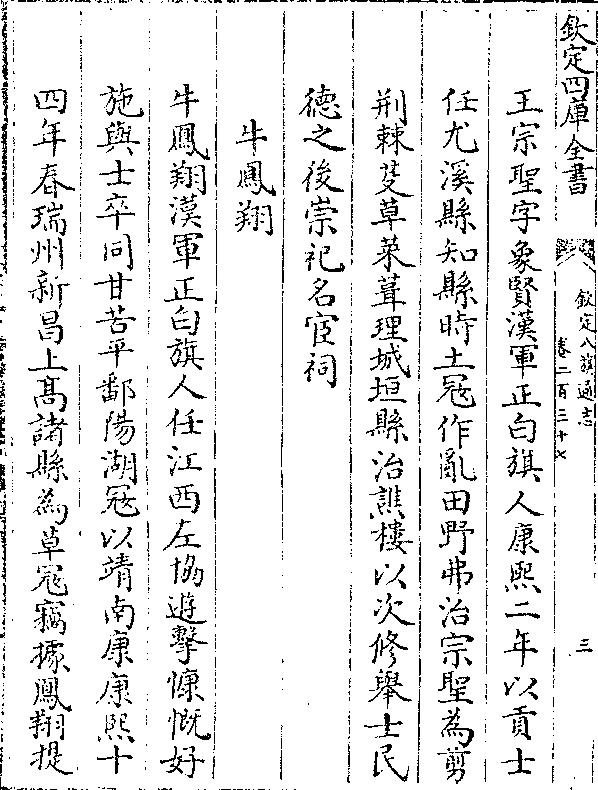 欽定四庫全書
欽定八旗通志
卷二百三十七
三
王宗聖字象賢漢軍正白旗人康熙二年以貢士
任尤溪縣知縣時土寇作亂田野弗治宗聖為剪
荆棘芟草萊葺理城垣縣治譙樓以次修舉士民
德之後崇祀名宦祠
牛鳳翔
牛鳳翔漢軍正白旗人任江西左協遊擊慷慨好
施與士卒同甘苦平鄱陽湖寇以靖南康康熙十
四年春瑞州新昌上髙諸縣為草寇竊據鳳翔提